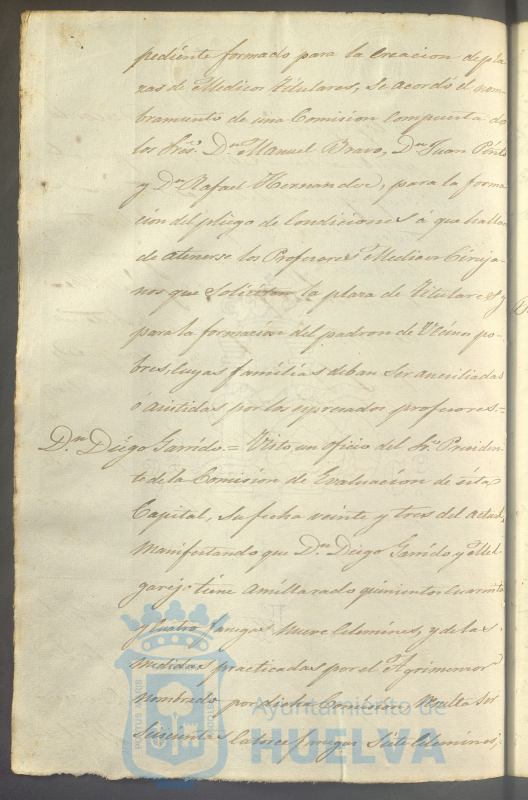 pediente formado para la creacion de pla
zas de Medicos titulares, se acordó el nom
bramiento de una Comision compuesta de
los Sres. Dn. Manuel Bravo, Dn. Juan Pinto
y Dn. Rafael Hernandez, para la forma
cion del pliego de Condiciones á que hallan
de atenerse los Profesores Medicos Ciruja
nos que soliciten la plaza de titulares y
para la formacion del padron de Vecinos po-
bres, cuyas familias deban ser ausiliadas
ó asistidas por los espresados profesores=
Dn. Diego Garrido.= Visto un oficio del Sr. Presiden
te de la Comision de Evaluacion de esta
Capital, su fecha veinte y tres del actual,
manifestando que Dn. Diego Garrido y Mel
garejo tiene amillarado quinientos cuarenta
y cuatro fanegas nueve celemines, y de las
medidas practicadas por el Agrimensor
nombrado por dicha Comision resulta ser
seiscientas catorce fanegas siete celemines,
Ayuntamiento de
HUELVA
PORTUS MARIS
CUSTODIA